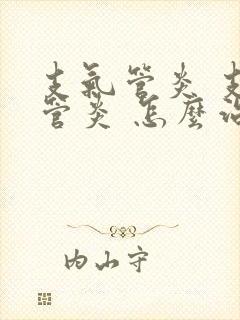 支氣管炎 支
管炎 怎麼治
内山守